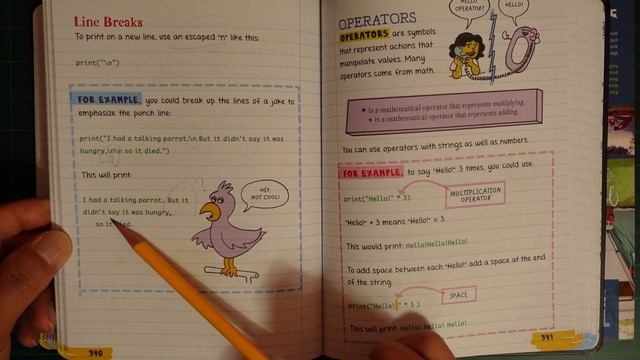 Line Breaks
To print on a new line, use an escaped "n" like this:
print("\n")
FOR EXAMPLE, you could break up the lines of a joke to
emphasize the punch line:
print("I had a talking parrot.\n But it didn't say it was
hungry,\n\n so it died.")
This will print:
I had a talking parrot. But it
didn't say it was hungry,
so it died.
HEY, NOT COOL!
340
OPERATORS
OPERATORS are symbols
that represent actions that
manipulate values. Many
operators come from math.
HELLO, OPERATOR?
HELLO!
* is a mathematical operator that represents multiplying.
+ is a mathematical operator that represents adding.
You can use operators with strings as well as numbers.
FOR EXAMPLE, to say "Hello!" 3 times, you could use:
print("Hello!" * 3)
MULTIPLICATION
OPERATOR
"Hello!" * 3 means "Hello!" x 3
This would print: Hello!Hello!Hello!
To add space between each "Hello!" add a space at the end
of the string:
print("Hello! " * 3 )
SPACE
This will print: Hello! Hello! Hello!
341